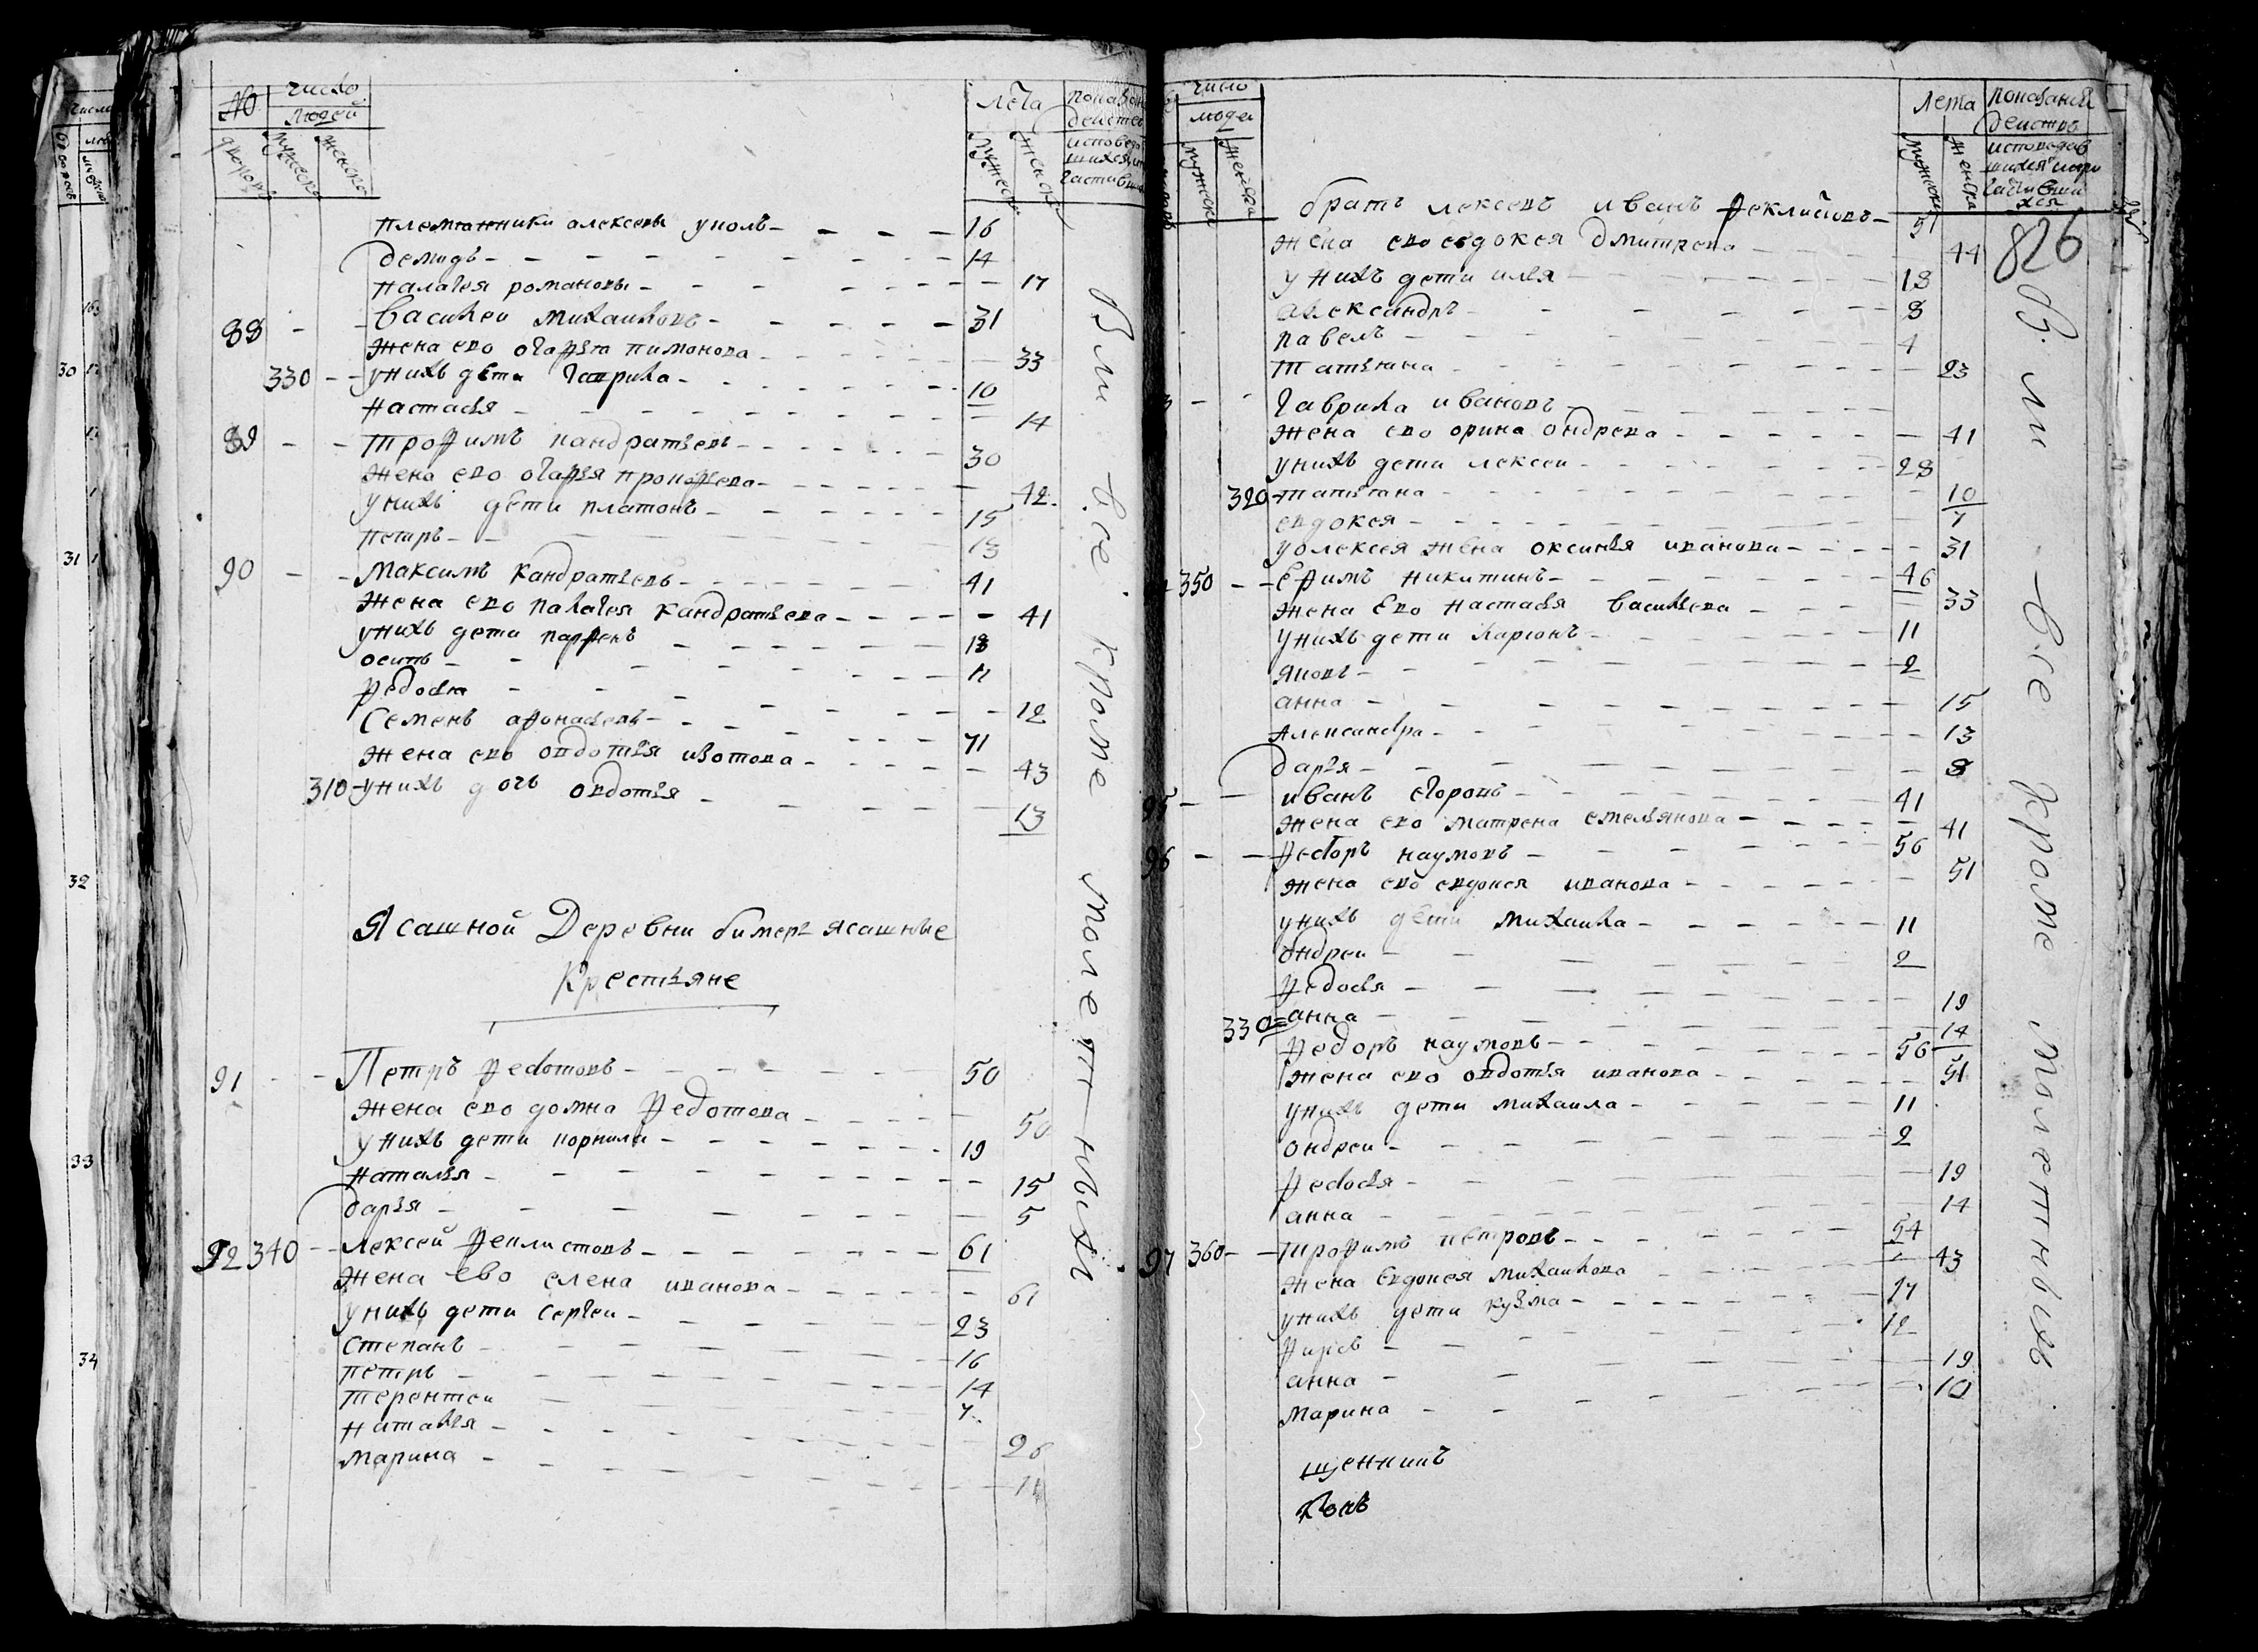 № дворовъ
Число людей
мужеска
женска
Лета
мужеска
женска
племянники алексевы уколъ 16
демидъ 14
палагея романовы 17
88 василеи михаиловъ 31
жена ево огафья пимонова 33
330 у нихъ дети гаврила 10
настасья 14
89 трофимъ кандратьевъ 30
жена ево огафья 42
у нихъ дети платонъ 15
петаръ 13
90 Максимъ кандратьевъ 41
жена ево палагея кандратьева 41
у нихъ дети парфенъ 18
осипъ 11
федосья 12
Семенъ афонасьевъ 71
жена ево овдотья изотова 43
310 у нихъ дочь овдотья 13
Ясашной Деревни бимерь ясашные
Крестьяне
91 Петръ федотовъ 50
жена ево домна федотова 50
у нихъ дети корнила 19
наталья 15
дарья 5
92 340 Лексей феклистовъ 61
жена ево елена иванова 61
у нихъ дети сергеи 23
степанъ 16
петръ 14
терентеи 7
наталья 26
марина
Вси все кроме молетныхъ
число людей
мужеска
женска
Лета
мужеска
женска
показаніи действъ
исповедав
826
братъ лексеевъ иванъ феклистовъ 51
жена ево евдокея дмитрева 44
у нихъ дети илья 18
александръ 8
павелъ 4
татьяна 23
гаврила ивановъ
жена ево орина ондрева 41
у нихъ дети лексеи 28
320 татьяна 10
евдокея 7
у олексея жена оксинья иванова 31
350 Ефимъ никитинъ 46
жена ево настасья васильева 33
у нихъ дети ларионъ 11
яковъ 2
анна 15
Александра 13
дарья 8
95 иванъ егоровъ 41
жена ево матрена емельянова 41
96 федоръ наумовъ 56
жена ево евдокея иванова 51
у нихъ дети михаила 11
ондреи 2
федосья 19
330 анна 14
федоръ наумовъ 56
жена ево овдотья иванова 51
у нихъ дети михаила 11
ондреи 2
федосья 19
анна 14
97 360 трофимъ петровъ 54
жена евдокея михаилова 43
у нихъ дети кузма 17
фирсъ 12
анна 19
марина 10
щенникъ
Вси все кроме молетныхъ